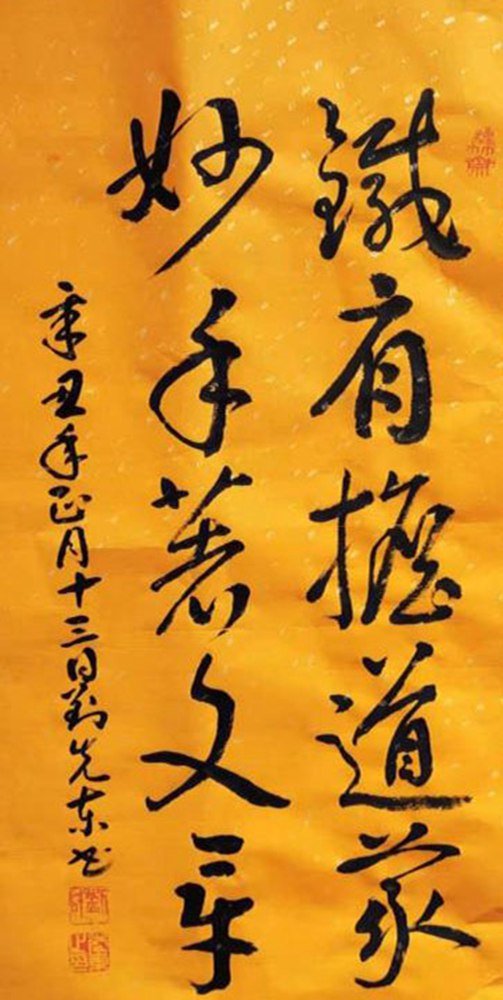 鐵肩擔道義
妙手著文章
辛丑年正月十三日劉先东书